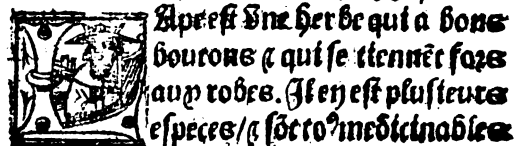 LApe est vne herbe qui a bons
boutons ⁊ qui se tiennẽt fors
aux robes. Il en est plusieurs
especes/⁊ sõt toꝰ medicinables